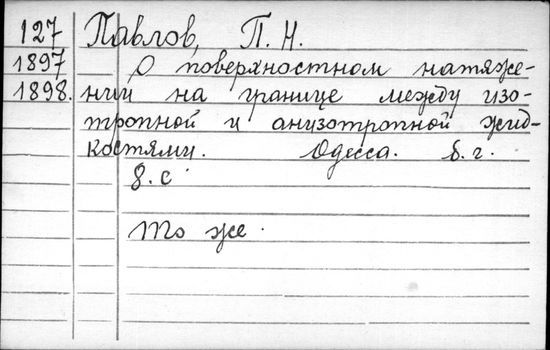 127 Павлов, П. Н.
1897 О поверхностном натяже-
1898. нии на границе между изо-
тропной и анизотропной жид-
костями. Одесса. б. г.
8. с
То же.